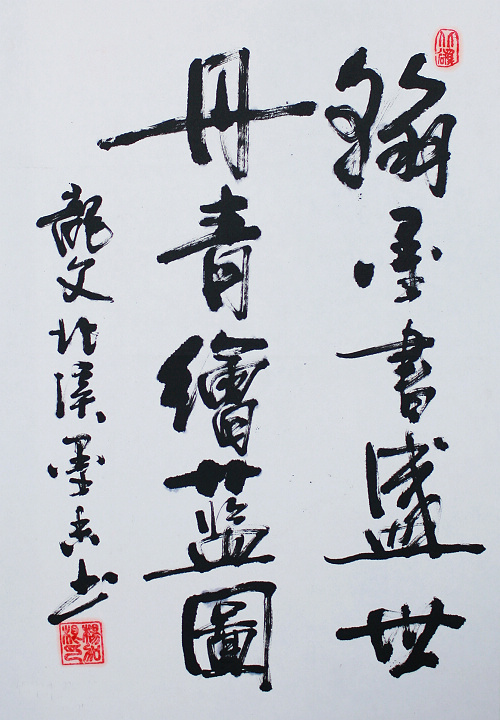 翰墨書盛世
丹青繪藍圖
龍文北溪墨香書